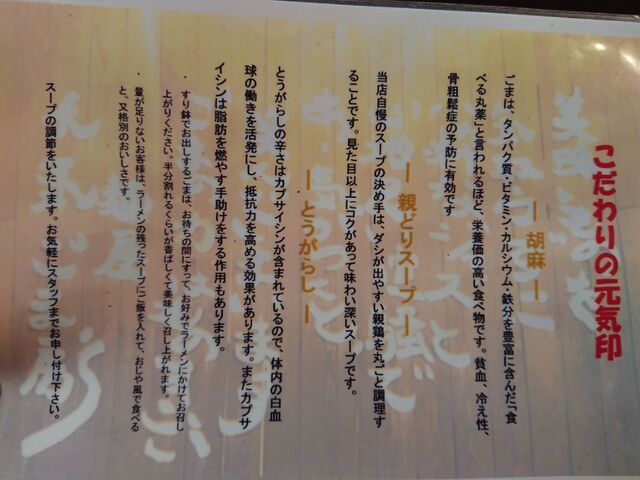 こだわりの元気印
― 胡麻 ―
ごまは、タンパク質・ビタミン・カルシウム・鉄分を豊富に含んだ「食
べる丸薬」と言われるほど、栄養価の高い食べ物です。貧血、冷え性、
骨粗鬆症の予防に有効です
― 親どりスープ ―
当店自慢のスープの決め手は、ダシが出やすい親鶏を丸ごと調理す
ることです。見た目以上にコクがあって味わい深いスープです。
― とうがらし ―
とうがらしの辛さはカプサイシンが含まれているので、体内の白血
球の働きを活発にし、抵抗力を高める効果があります。またカプサ
イシンは脂肪を燃やす手助けをする作用もあります。
・すり鉢でお出しするごまは、お待ちの間にすって、お好みでラーメンにかけてお召し
上がりください。半分割れるくらいが香ばしくて美味しく召し上がれます。
・量が足りないお客様は、ラーメンの残ったスープにご飯を入れて、おじや風で食べる
と、又格別のおいしさです。
スープの調節をいたします。お気軽にスタッフまでお申し付け下さい。